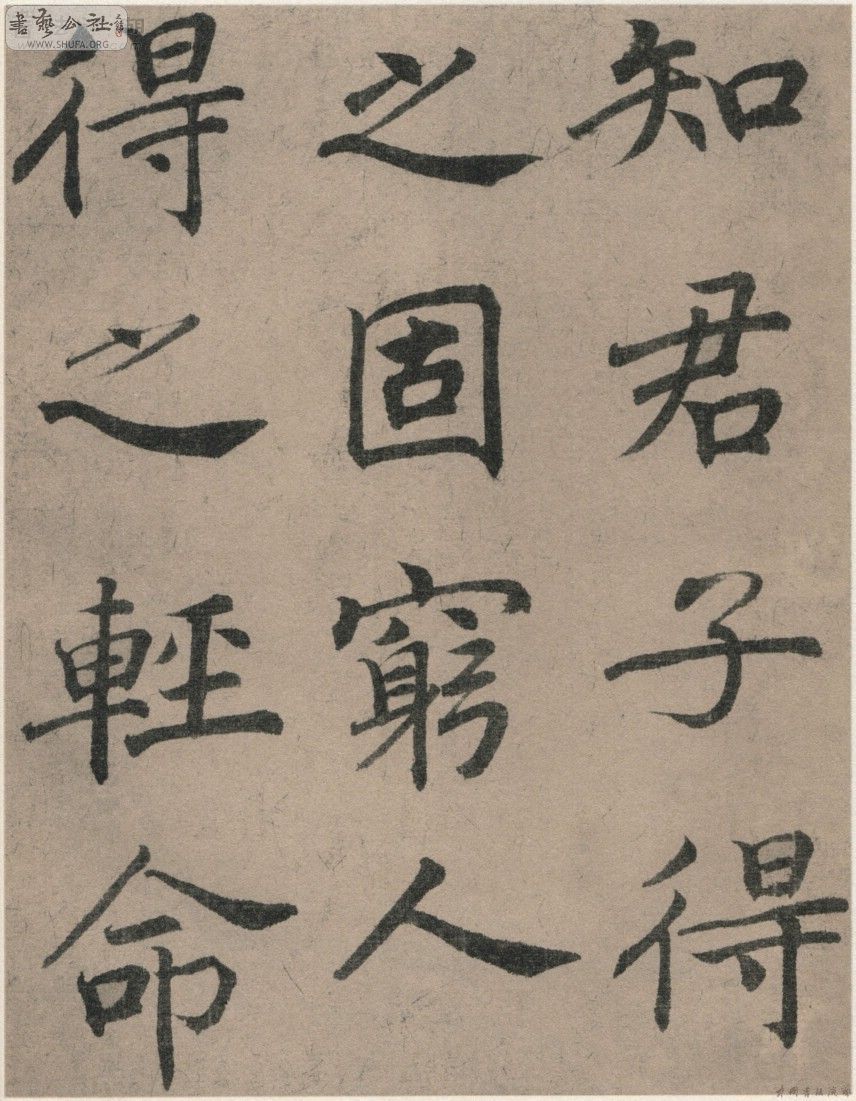 知君子得
之固窮人
得之輕命
書藝公社
WWW.SHUFA.ORG